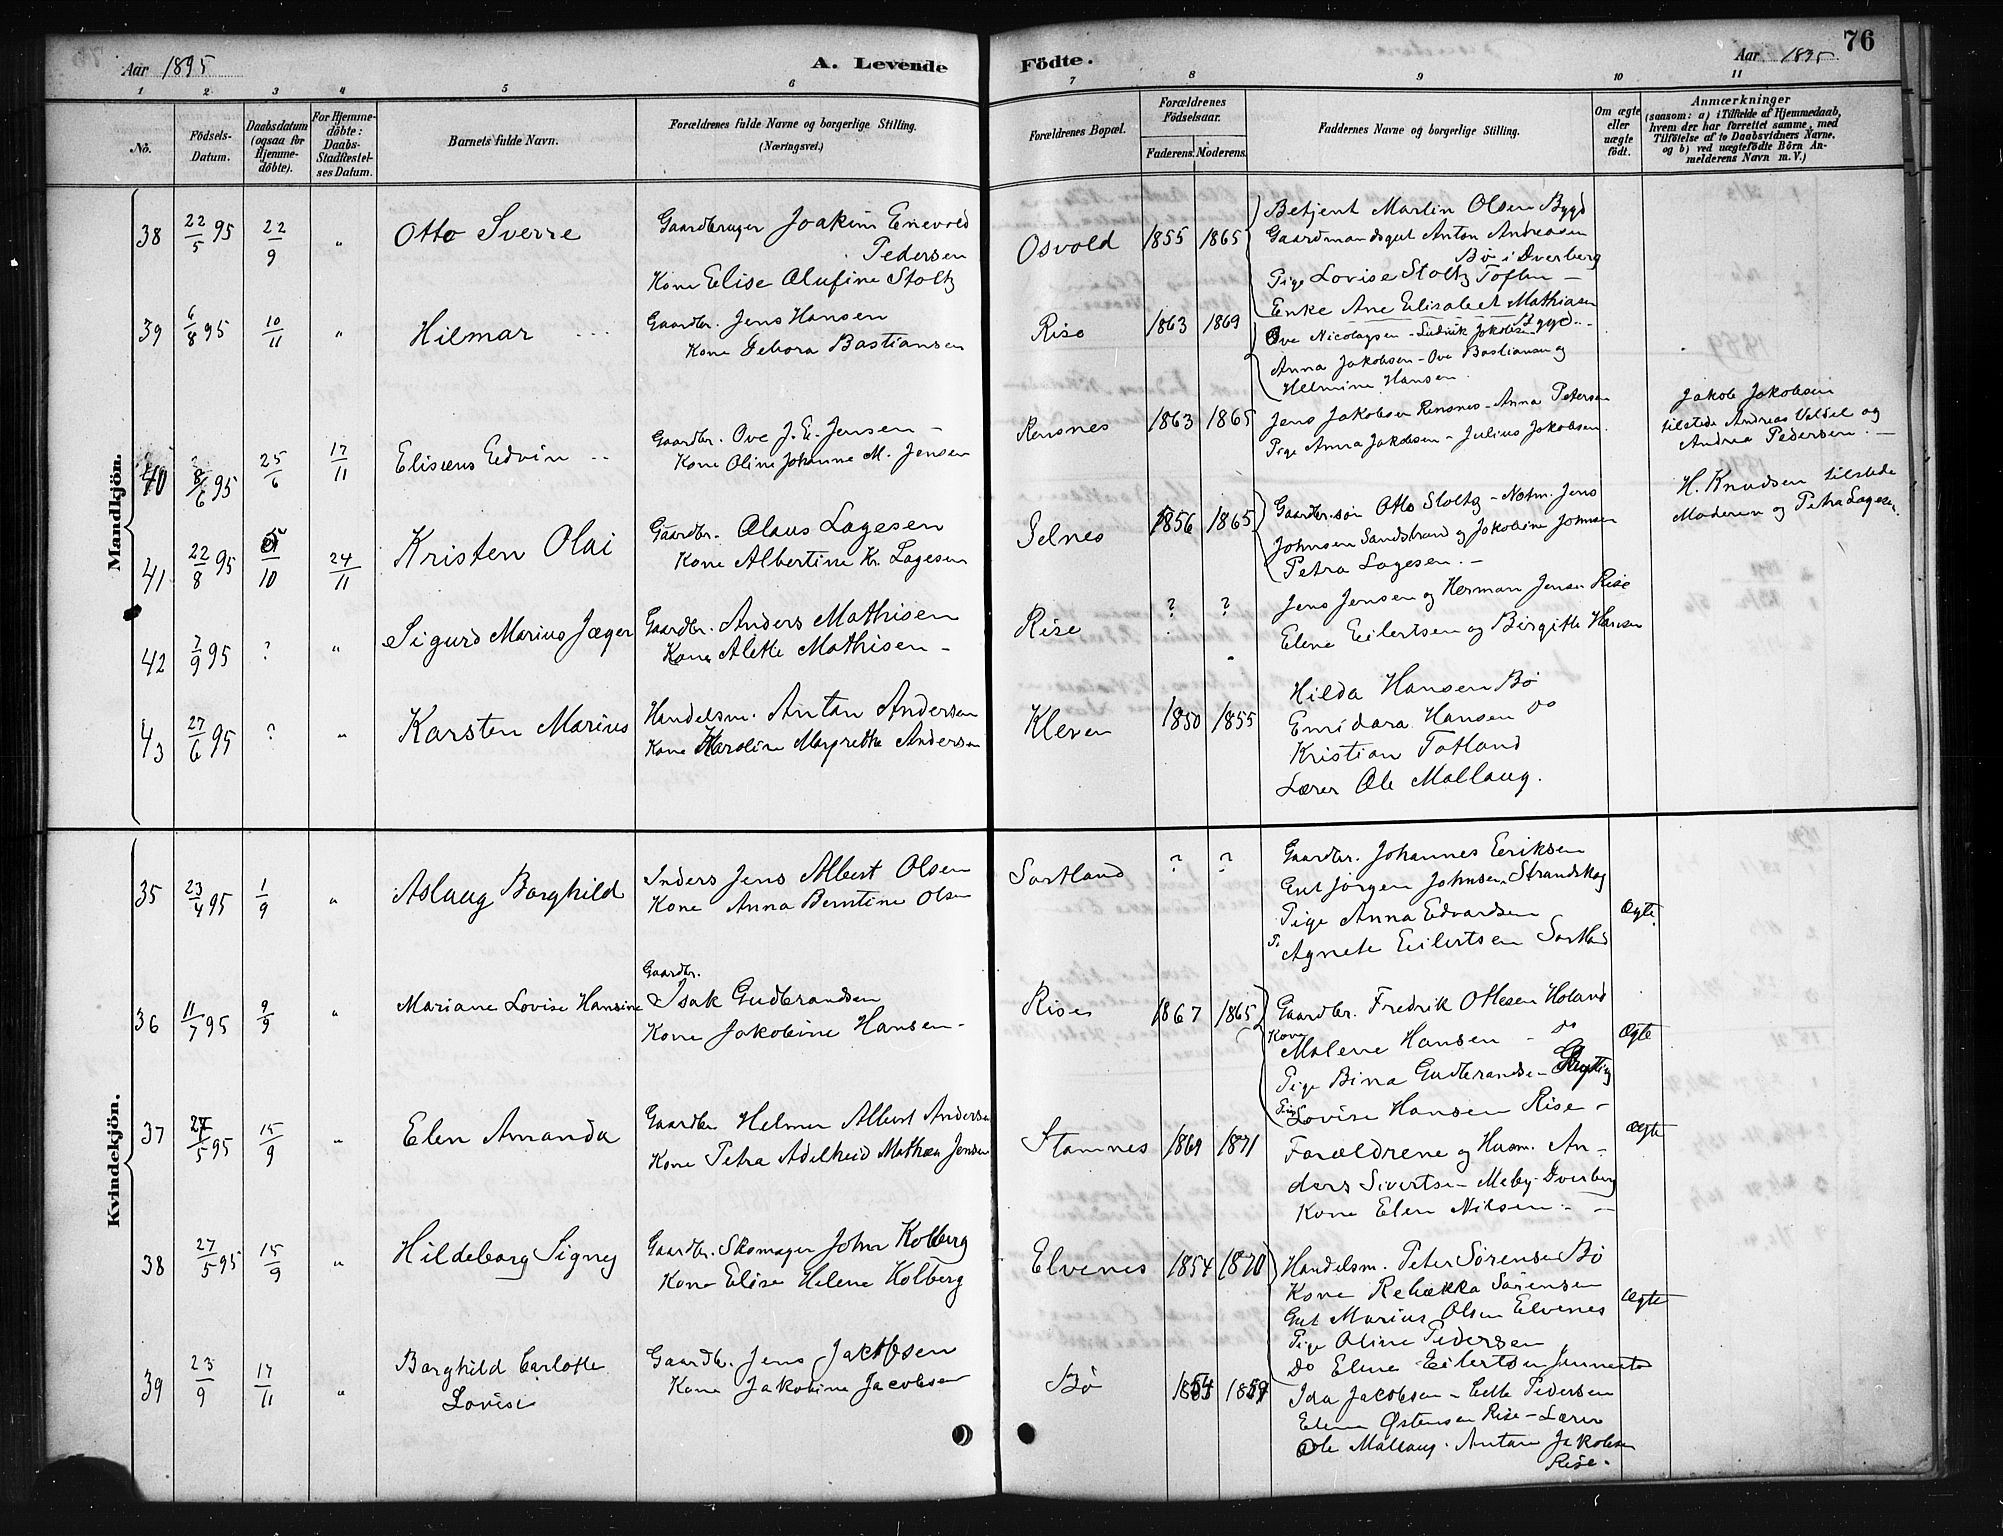 Aar 1895
A. Levende
Födte.
Aar 1895
76
1 2 3 4 5 6 7 8 9 10 11
No.
Födsels-Datum.
Daabsdatum (ogsaa for Hjemmedöbte).
For Hjemmedöbte: Daabs-Stadfestelses Datum.
Barnets fulde Navn.
Forældrenes fulde Navne og borgerlige Stilling.
(Næringsvei.)
Forældrenes Bopæl.
Forældrenes Födselsaar.
Faderens. Moderens.
Faddernes Navne og borgerlige Stilling.
Om ægte eller uægte födt.
Anmærkninger
(saasom: a) i Tilfælde af Hjemmedaab, hvem der har forrettet samme, med Tilföielse af to Daabsvidners Navne, og b) ved uægtefödte Börn Anmelderens Navn m. V.)
Mandkjön.
38 22/5 95 22/9 " Otto Sverre
Gaardbruger Joakim Enevold
Pedersen
Kone Elise Olufine Stoltz
Osvold 1855 1865
Betjent Martin Olsen Bygd
Gaardmandsgut Anton Andreasen
Bö i Dverberg
Pige Lovise Stoltz Toften —
Enke Ane Elisabet Mathiasen
Bygd
39 6/8 95 10/11 " Hilmar
Gaardbr. Jens Hansen
Kone Debora Bastiansen
Rise 1863 1869
Ove Nicolaysen - Ludvik Jakobsen
Anna Jakobsen - Ove Bastiansen og
Helmine Hansen.
40 8/6 95 25/6 17/11 Elisæus Edvin
Gaardbr. Ove J. E. Jensen —
Kone Oline Johanne M. Jensen
Rensnes 1863 1865
Jens Jakobsen Rensnes - Anna Petersen
Pige Anna Jakobsen - Julius Jakobsen.
Jakob Jakobsen
tilstede Andreas Valdel og
Andrea Pedersen. —
41 22/8 95 5/10 24/11 Kristen Olai
Gaardbr. Olaus Lagesen
Kone Albertine Kr. Lagesen
Selnes 1856 1865
Gaardbr.sön Otto Stoltz - Notm. Jens
Johnsen Sandstrand og Jakobine Johnsen
Petra Lagesen. —
H. Knudsen tilstede
Moderen og Petra Lagesen.
42 7/9 95 ? " Sigurd Marius Jæger
Gaardbr. Anders Mathisen
Kone Alette Mathisen —
Rise ? ?
Jens Jensen og Herman Jensen Rise
Elene Eilertsen og Birgitte Hansen
43 27/6 95 ? " Karsten Marius
Handelsm. Antan Andersen
Kone Karoline Margrethe Andersen
Kleven 1850 1855
Hilda Hansen Bö
Emidara Hansen do
Kristian Totland
Lærer Ole Mallaug.
Kvindekjön.
35 23/4 95 1/9 " Aslaug Borghild
Inders Jens Albert Olsen
Kone Anna Berntine Olsen
Sortland ? ?
Gaardbr. Johannes Eriksen
Gut Jörgen Johnsen Strandskog
Pige Anna Edvardsen
P. Agnete Eilertsen Sortland
Ægte.
36 11/7 95 9/9 " Mariane Lovise Hansine
Gaardbr.
Isak Gudbrandsen
Kone Jakobine Hansen -
Rise 1867 1865
Gaardbr. Fredrik Ottesen Holand
Kone Malene Hansen — do
Pige Bina Gudbrandsen
Pige Lovise Hansen Rise -
Ægte
37 5 95 15/9 " Elen Amanda
Gaardbr Helmer Albert Andersen
Kone Petra Adelheid Mathea Jensen
Stamnes 1869 1871
Forældrene og Husm. An-
ders Sivertsen Meby - Dverberg
Kone Elen Nilsen — —
Ægte
38 27/5 95 15/9 " Hildeborg Signy
Gaardbr. Skomager John Kolberg
Kone Elise Helene Kolberg
Elvenes 1854 1870
Handelsm. Peter Sörensen Bö
Kone Rebækka Sörensen
Gut Marius Olsen Elvenes
Pige Oline Pedersen
Do Eline Eilertsen
Ægte
39 23/9 17/11 " Borghild Carlotte
Lovise
Gaardbr. Jens Jakobsen
Kone Jakobine Jacobsen
Bö
Ida Jacobsen - Edle Pedersen
Eline Østensen Rise - Lærer
Ole Mallaug. Antan Jakobsen
Rise.